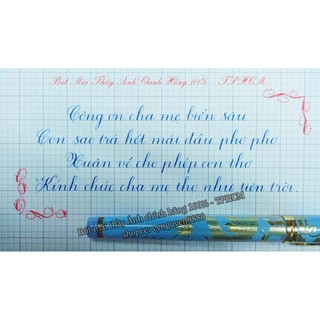 Bút Mài Thầy Ánh Chính Hãng 100% TPHCM
Công ơn cha mẹ biển sâu
Con sao trả hết mái đầu phơ phơ
Xuân về cho phép con thơ
Kính chúc cha mẹ thọ như tiên trời.
Bút mài thầy Ánh chính hãng 100% - TPHCM